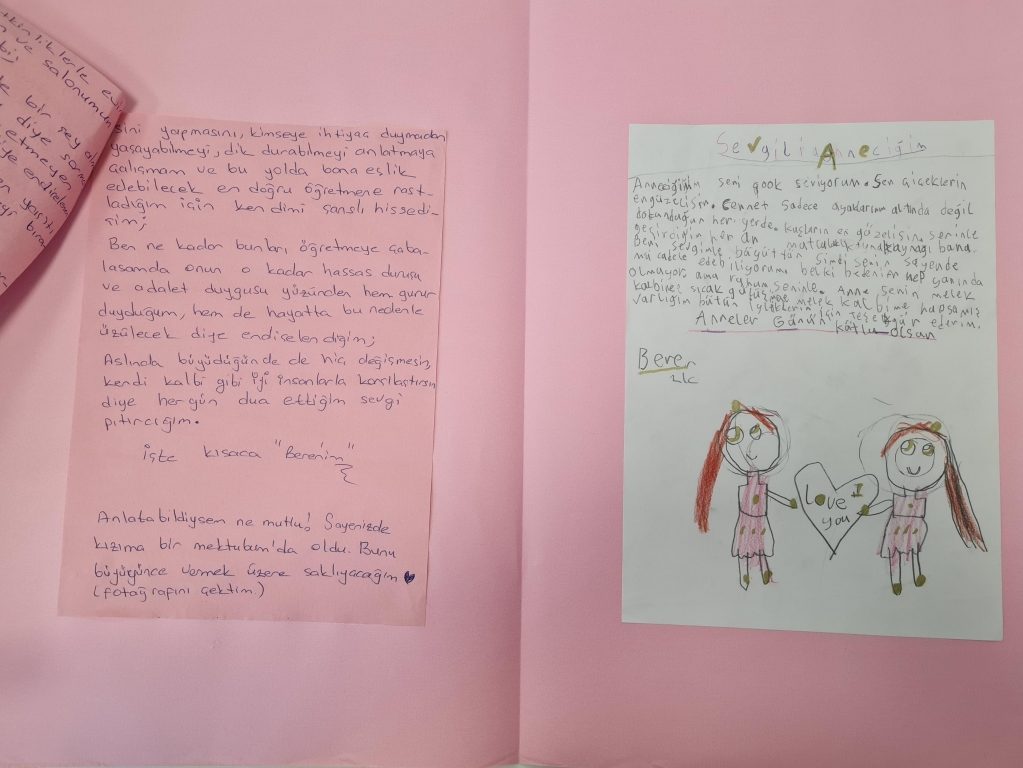 tkinliklerle evin
ve salonumun
bir şey
diye
etmeyen
diye endişelen
yansıtı
şini yapmasını, kimseye ihtiyaç duymadan
yaşayabilmeyi, dik durabilmeyi anlatmaya
çalışmam ve bu yolda bana eşlik
edebilecek en doğru öğretmene rast-
ladığım için kendimi şanslı hissedi-
şim;
Ben ne kadar bunları öğretmeye çaba-
lasamda onun o kadar hassas duruşu
ve adalet duygusu yüzünden hem gurur
duyduğum, hem de hayatta bu nedenle
üzülecek diye endişelendiğim;
Aslında büyüdüğünde de hiç değişmesin,
kendi kalbi gibi iyi insanlarla karşılaştırsın
diye hergün dua ettiğim sevgi
pıtırcığım.
işte kısaca "Berenim"
Anlatabildiysem ne mutlu! Sayenizde
kızıma bir mektubum'da oldu. Bunu
büyüyünce vermek üzere saklıyacağım
(fotoğrafını çektim.)
Sevgili Anneciğim
Anneciğim seni çook seviyorum. Sen çiçeklerin
engüzelisin. Cennet sadece ayaklarının altında değil
dokunduğun her yerde. kuşların en güzelisin. seninle
geçirdiğin her an mutluluktun kaynağı bana.
Beni sevginle büyüttün Şimdi senin sayende
mücadele edebiliyorum belki bedenim hep yanında
olmuyor ama ruhum seninle. Anne senin melek
kalbine sıcak melek kalbime hapsamış
varlığım bütün için teşekkür ederim.
Anneler Günün kutlu olsun
Beren
Love I
you